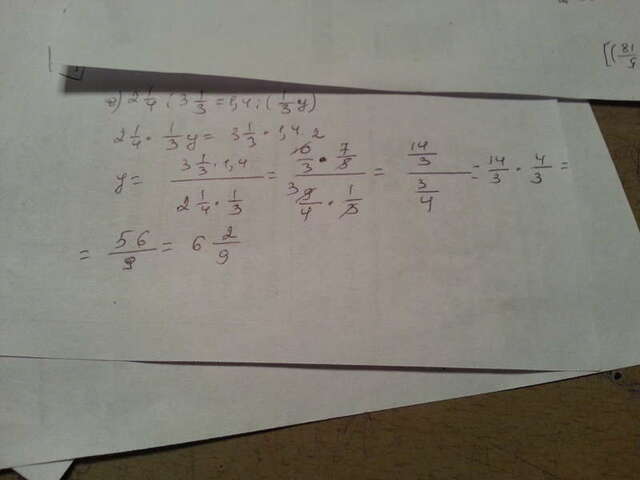 [(81/9
2) 2 1/4 : 3 1/3 = 1,4 : (1/3 y)
2 1/4 · 1/3 y = 3 1/3 · 1,4
y = (3 1/3 · 1,4)/(2 1/4 · 1/3) = (10/3 · 7/5)/(9/4 · 1/3) = (14/3)/(3/4) = 14/3 · 4/3 =
= 56/9 = 6 2/9